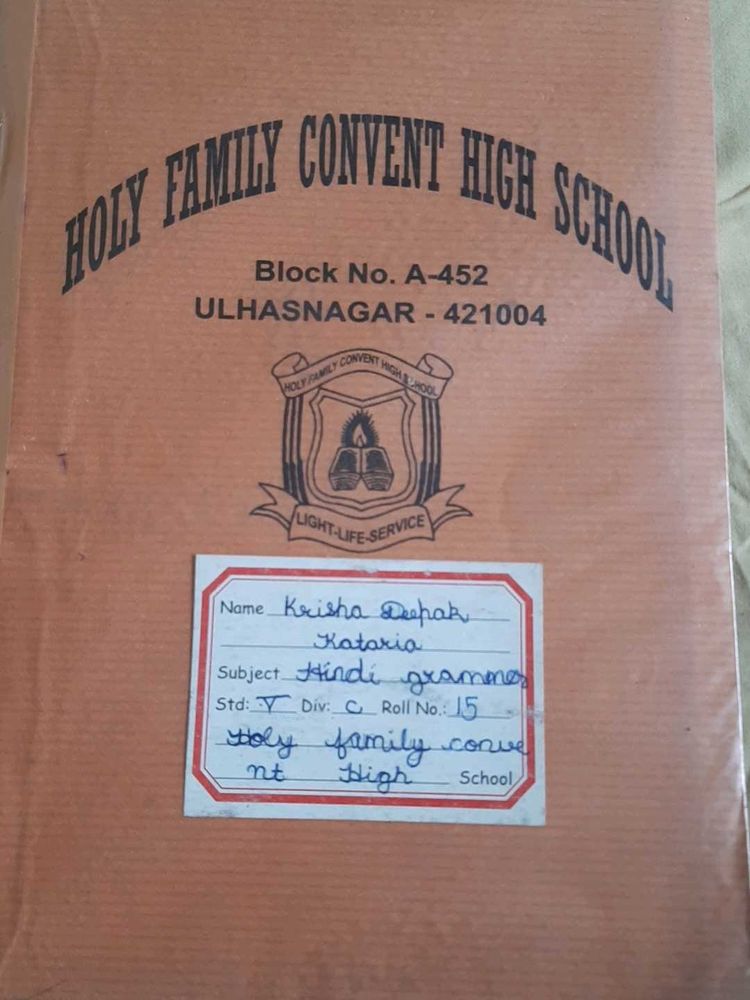 HOLY FAMILY CONVENT HIGH SCHOOL
Block No. A-452
ULHASNAGAR - 421004
HOLY FAMILY CONVENT HIGH SCHOOL
LIGHT-LIFE-SERVICE
Name Krisha Deepak
Kataria
Subject Hindi grammer
Std: V Div: C Roll No.: 15
Holy family conve
nt High School